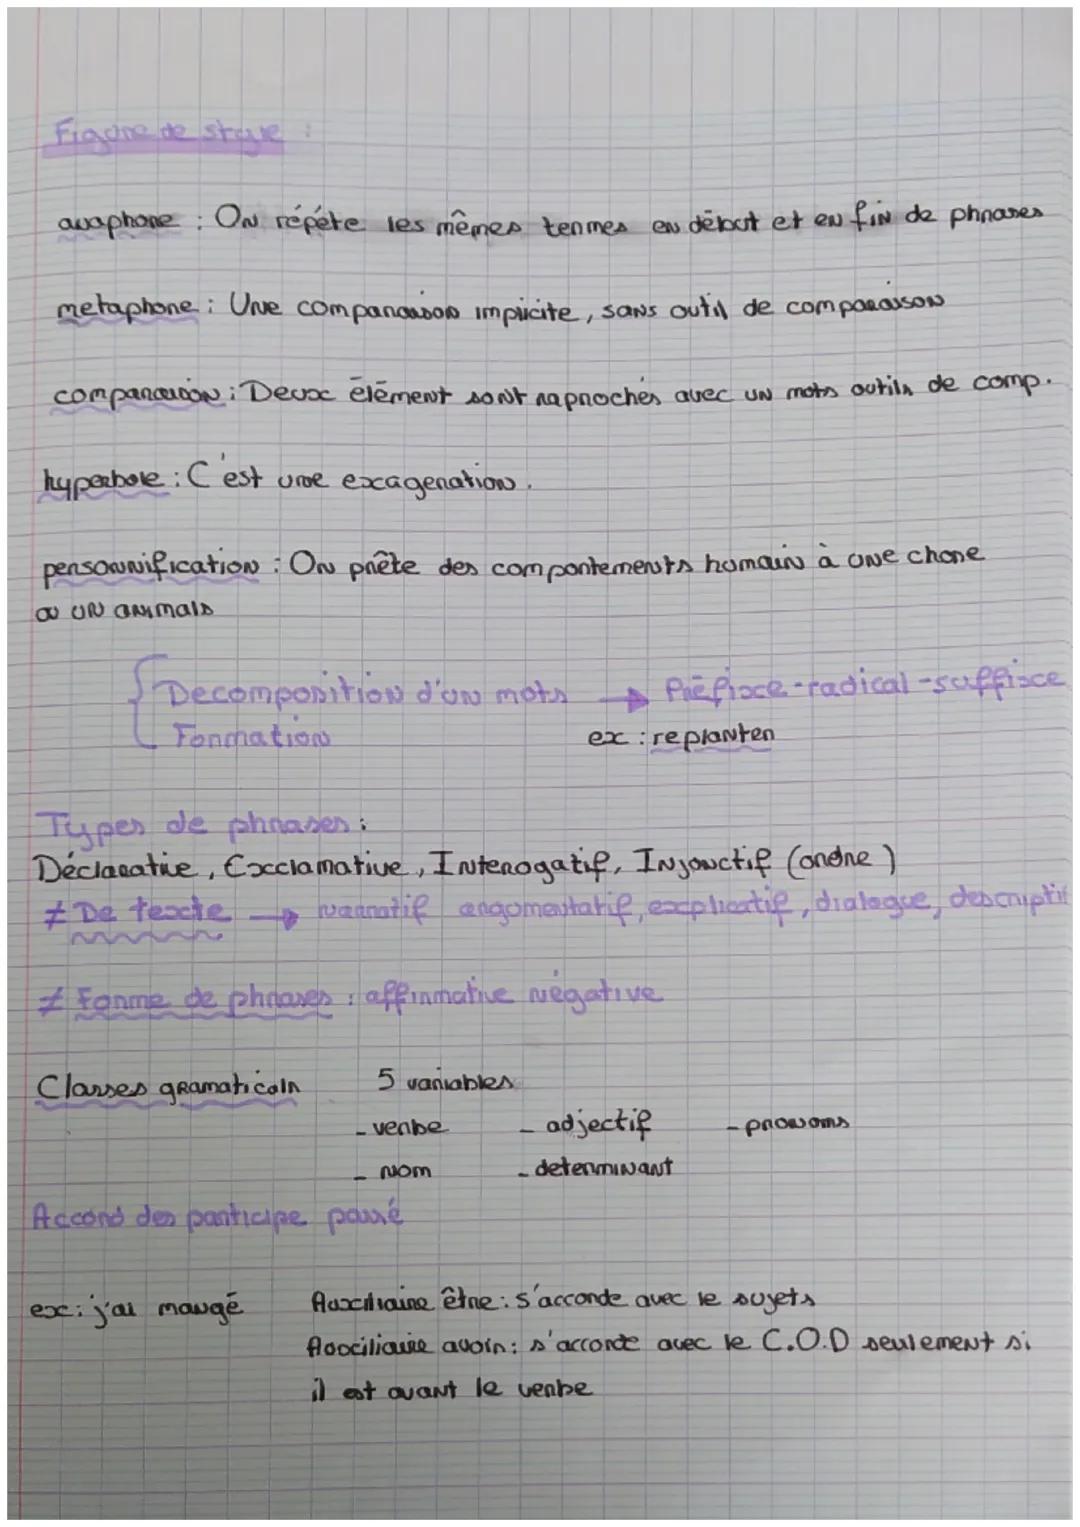 Figure de style :
anaphore : On répéte les mêmes termes en début et en fin de phrases
metaphore : Une comparaison implicite, sans outil de comparaison
comparaison : Deux élément sont raprochés avec un mots outils de comp.
hyperbole : C'est une exageration.
personnification : On prête des comportements humain à une chose
ou un animals
Decomposition d'un mots → Préfixe - radical - suffixe
Formation ex : replanter
Types de phrases :
Déclarative, Exclamative, Interogatif, Injonctif (ordre)
≠ De texte → narratif argumentatif, explicatif, dialogue, descriptif
≠ Forme de phrases : affirmative négative
Classes gramaticals 5 variables
- verbe - adjectif - pronoms
- nom - determinant
Accord des participe passé
ex : j'ai mangé Auxiliaire être : s'accorde avec le sujets
Auxiliaire avoir : s'accorde avec le C.O.D seulement si
il est avant le verbe